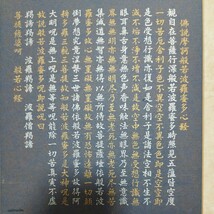 佛說摩訶般若波羅蜜多心經
觀自在菩薩行深般若波羅蜜多時照見五蘊皆空度
一切苦厄舍利子色不異空空不異色色即是空空即
是色受想行識亦復如是舍利子是諸法空相不生不
滅不垢不淨不增不減是故空中無色無受想行識無
眼耳鼻舌身意無色聲香味觸法無眼界乃至無意識
界無無明亦無無明盡乃至無老死亦無老死盡無苦
集滅道無智亦無得以無所得故菩提薩埵依般若波
羅蜜多故心無罣礙無罣礙故無有恐怖遠離一切顛
倒夢想究竟涅槃三世諸佛依般若波羅蜜多故得阿
耨多羅三藐三菩提故知般若波羅蜜多是大神呪是
大明呪是無上呪是無等等呪能除一切苦真實不虛
故說般若波羅蜜多呪即說呪曰
揭諦揭諦 波羅揭諦 波羅僧揭諦
菩提薩婆訶 般若心經